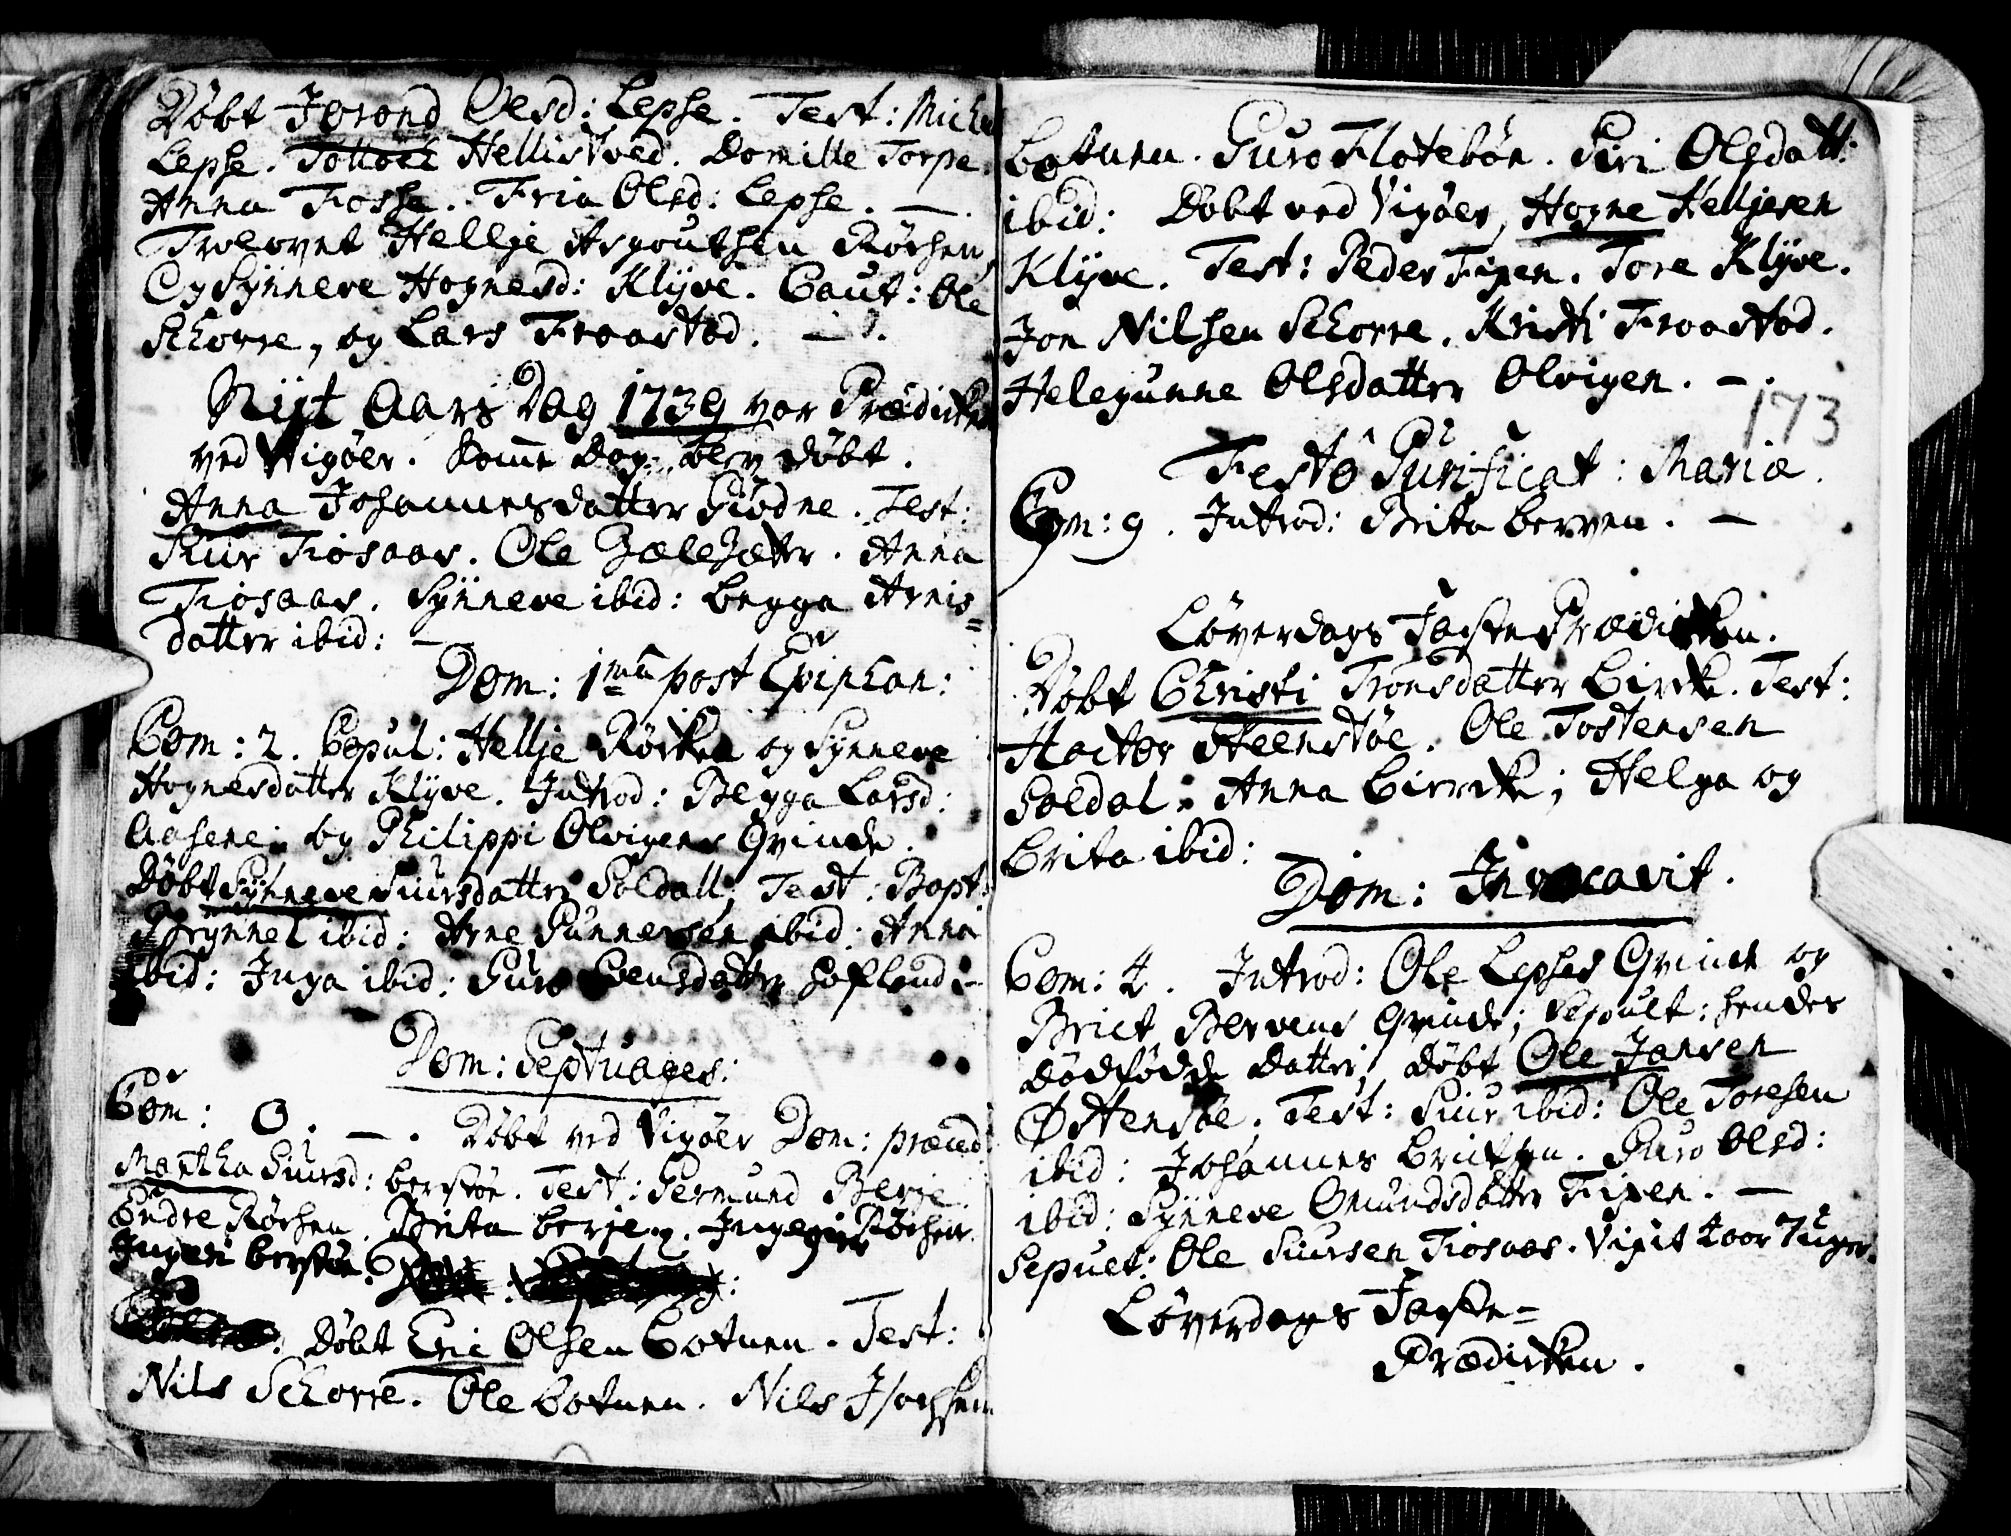 Døbt Jorond Olsd: Lepse. Test: Miche
Lepse. Tolloch Hellistved. Domille Torpe.
Anna Fosse. Fria Olsd: Lepse. —.
Trolovet Hellje Asgoutsen Røchen,
Og Sÿnneve Hognesd: Klÿve. Caut: Ole
Schorre, og Lars Fraastød. —.
Nÿt Aars Dag 1739 var Prædicken
ved Vigøer. Samme Dag blev døbt.
Anna Johannesdatter Giødne. Test:
Siur Tiosaas. Ole . Anna
Tiosaas. Sÿnneve ibid: Begga Arnis=
datter ibid: —
Dom: 1ma post Epiphan:
Com: 2. Copul: Hellje Røcken og Sÿnneve
Hognesdatter Klÿve. Introd: Begga Larsd:
Aasene: og Philippi Olvigens Qvinde.
Døbt Sÿnneve Siursdatter Soldall, Test: Bopt:
Brÿnnel ibid: Arne Gunnersøn ibid: Anna
ibid: Inga ibid: Guro datter —
Dom: Septuages:
Com: 0. —. Døbt ved Vigøer Dom: præced:
Martha Siursd: Berstøe. Test: Germund Berje
Endre Røchen. Brita Berje. Ingegier Røchen.
Ingeri Berstøe.
Døbt Eric Olsen Botnen. Test:
Nils Schorre. Ole Botnen. Nils
Botnen. Guro Flotebøn. Siri Olsdatt:
ibid: Døbt ved Vigøer, Hogne Helljesen
Klÿve. Test: Peder Fixen. Tore Klÿve.
Jon Nilsen Schorre. Kristi Fraastød.
Helegunne Olsdatter Olvigen. —.
173
Festo Purificat: Mariæ.
Com: 9. Introd: Brita Berven. —
Løverdags Faste Prædicken.
Døbt Christi Tronsdatter Birck. Test:
Hactor Steenstøe. Ole Tostensen
Soldal. Anna Birck; Helga og
Brita ibid:
Dom: Invocavit.
Com: 4. Introd: Ole Lepses Qvinde og
Brict Bervens Qvinde; Sepult: hendes
dødfødde datter; døbt Ole Jansen
Østensøe. Test: Siur ibid: Ole Toresen
ibid: Johannes . Guro Olsd:
ibid: Sÿnneve Omundsdatter Fixen. —
Sepult: Ole Siursen Tiosaas. Vixit 4 aar 7 uger.
Løverdags Faste=
Prædicken.